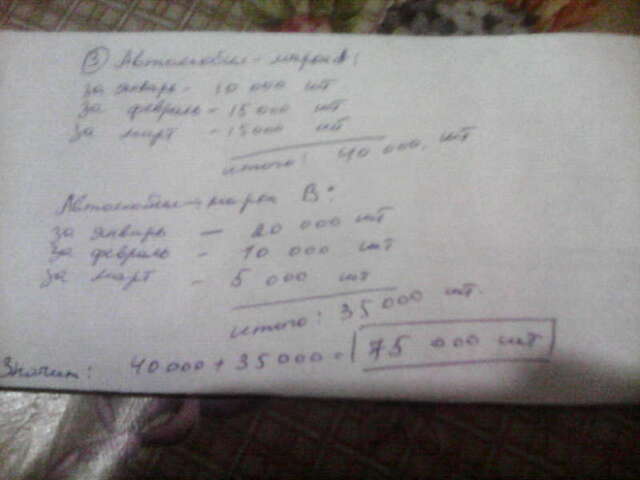 ③ Автомобили - марки А:
за январь - 10 000 шт
за февраль - 15 000 шт
за март - 15000 шт
итого: 40 000 шт
Автомобили - марки В:
за январь — 20 000 шт
за февраль - 10 000 шт
за март - 5 000 шт
итого: 35 000 шт.
Значит: 40 000 + 35 000 = 75 000 шт